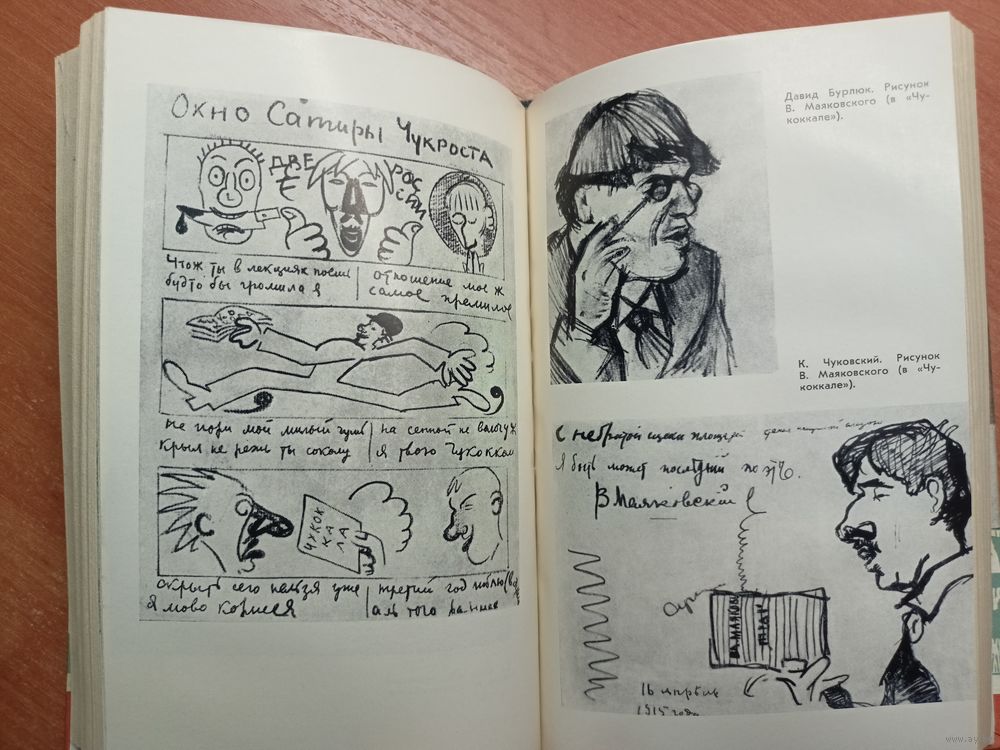 Окно Сатиры Чукроста
ДВЕ РОС
Е СИИ
Чтож ты в лекциях поешь
будто бы громила я
отношение мое ж
самое премилое
Не пори мой милый
крыл не режь ты соколу
на сенной не
я твою Чукоккалу
ЧУКОК
КА
ЛА
скрыть сего нельзя уже
я мово Корнея
третий год люблю (в
аль того раннее
Давид Бурлюк. Рисунок
В. Маяковского (в «Чу-
коккале»).
К. Чуковский. Рисунок
В. Маяковского (в «Чу-
коккале»).
С небритой щеки площадей
я быть может последный поэтъ.
В Маяковскій
ВЛ. МАЯКОВ
16 апрѣль
1915 года
www.ay.by